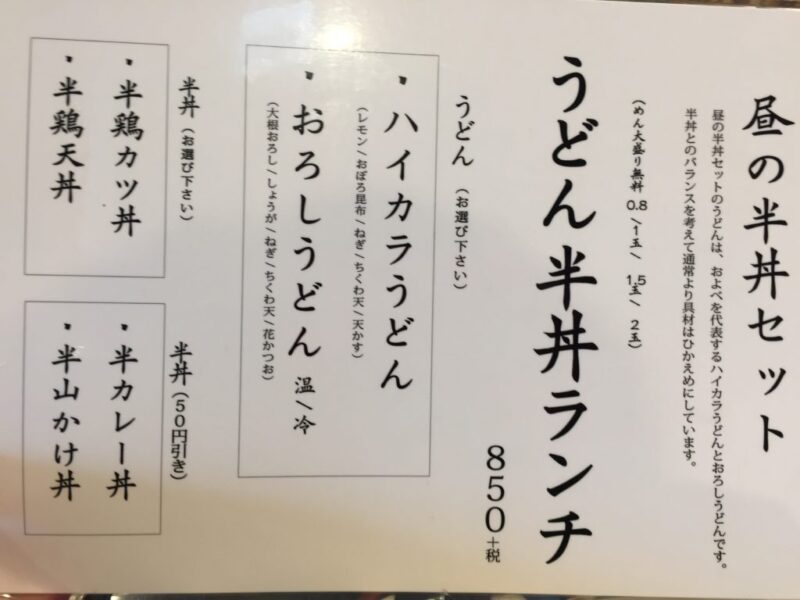 昼の半丼セット
昼の半丼セットのうどんは、およべを代表するハイカラうどんとおろしうどんです。
半丼とのバランスを考えて通常より具材はひかえめにしています。
(めん大盛り無料 0.8/1玉/ 1.5玉/ 2玉)
うどん半丼ランチ
850+税
うどん (お選び下さい)
・ハイカラうどん
(レモン/おぼろ昆布/ねぎ/ちくわ天/天かす)
・おろしうどん 温/冷
(大根おろし/しょうが/ねぎ/ちくわ天/花かつお)
半丼 (お選び下さい)
・半鶏カツ丼
・半鶏天丼
半丼 (50円引き)
・半カレー丼
・半山かけ丼